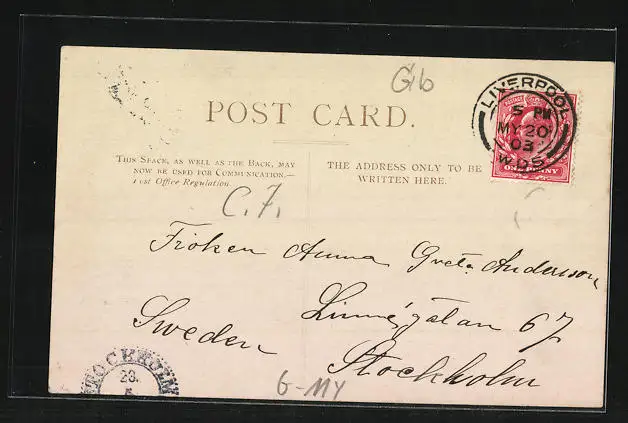 Gib
POST CARD.
LIVERPOOL
5 PM
MY 20
03
W.D.5
ONE PENNY
THIS SPACE, AS WELL AS THE BACK, MAY
NOW BE USED FOR COMMUNICATION.—
Post Office Regulation
THE ADDRESS ONLY TO BE
WRITTEN HERE.
C.7.
Fröken Anna Greta Andersson
Linnégatan 67
Sweden
Stockholm
STOCKHOLM
23.
5
G-MY